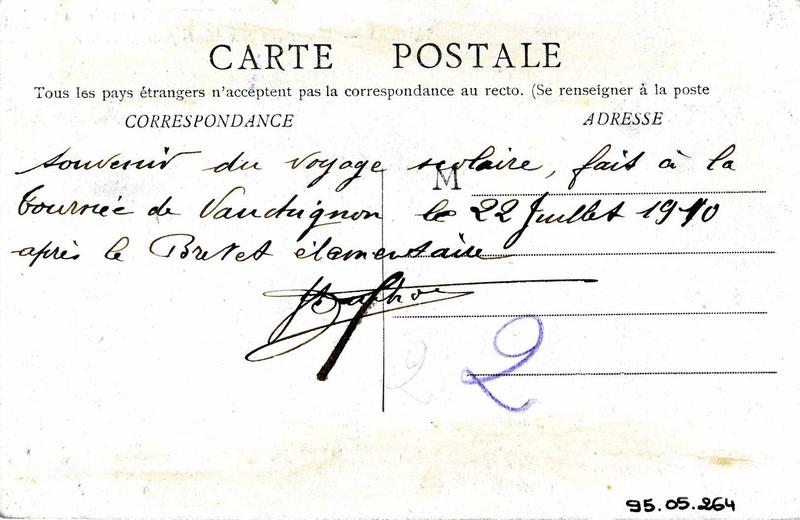 CARTE POSTALE
Tous les pays étrangers n'acceptent pas la correspondance au recto. (Se renseigner à la poste
CORRESPONDANCE ADRESSE
souvenir du voyage scolaire, fait à la
M
tournée de Vauchignon le 22 Juillet 1910
après le Brevet élémentaire
2
2
95.05.264